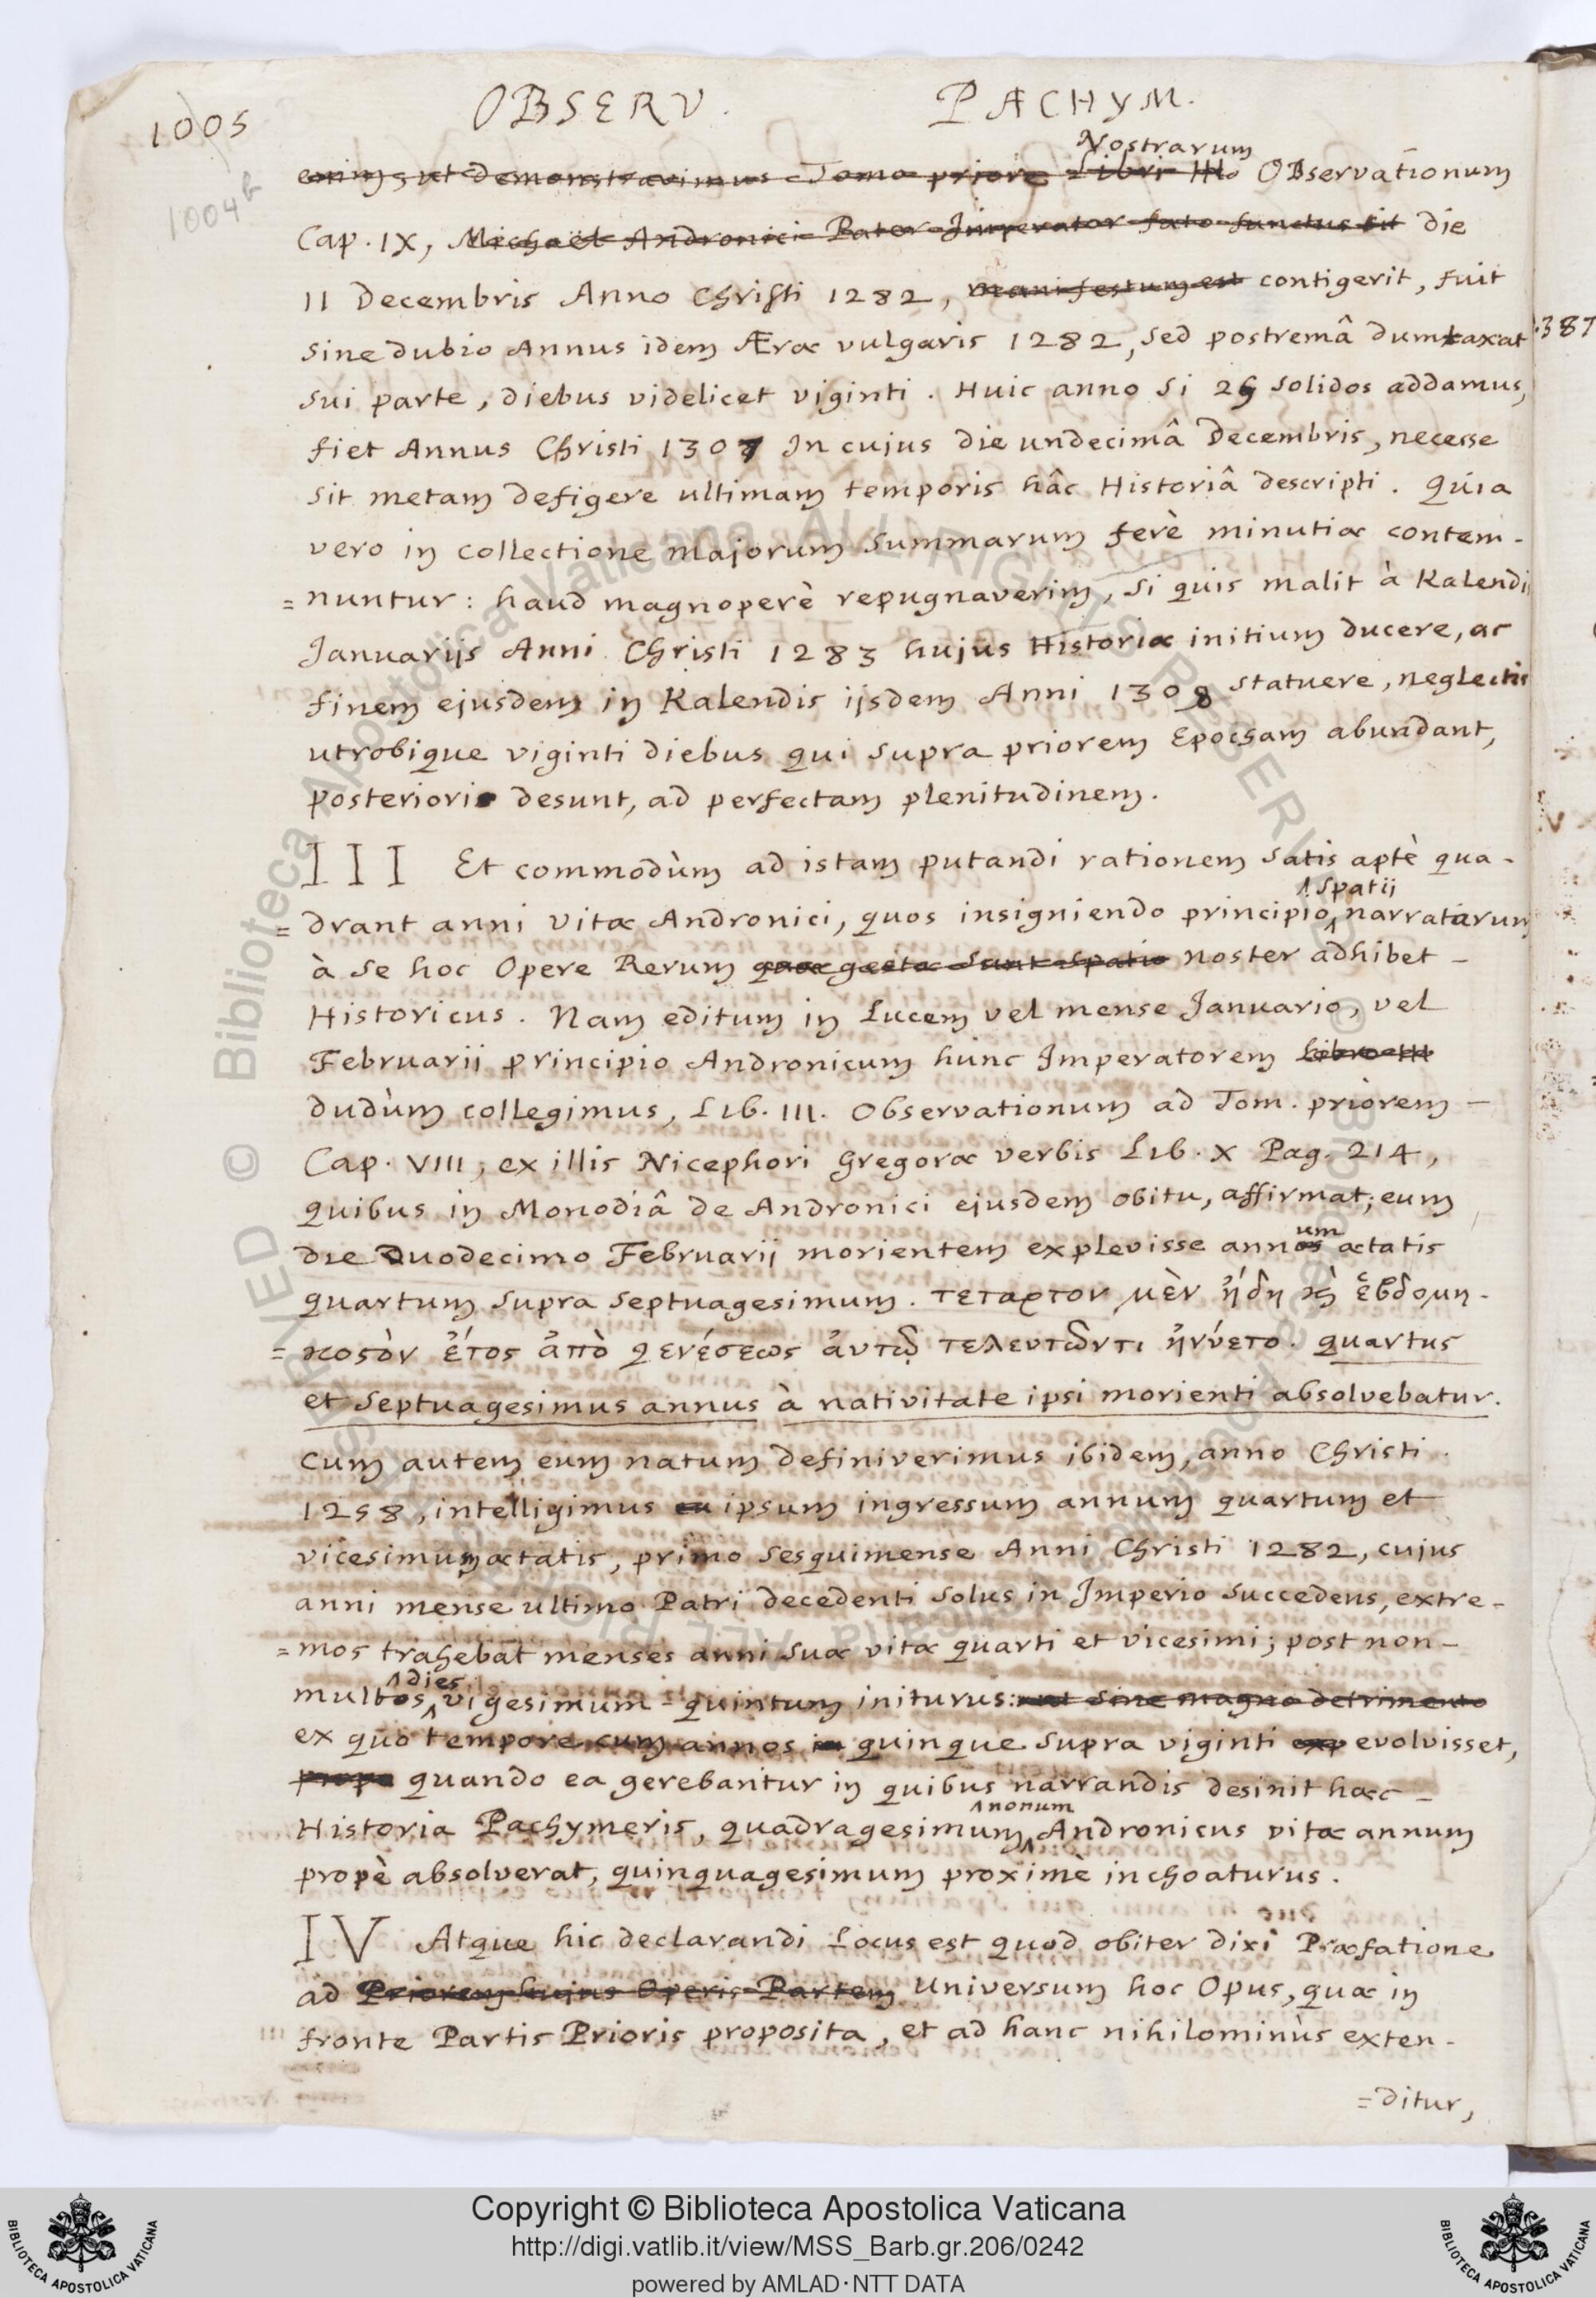 OBSERV. PACHYM.
1005
1004b
Nostrarum
enim, ut demonstravimus Tomo priore Libri IIIo OBservationum
Cap. IX, Michaël Andronici Pater Imperator fato functus sit die
11 Decembris Anno Christi 1282, manifestum est contigerit, fuit
sine dubio Annus idem Æræ vulgaris 1282, sed postremâ dumtaxat
sui parte, diebus videlicet viginti. Huic anno si 25 solidos addamus,
fiet Annus Christi 1307 In cujus die undecimâ Decembris, necesse
sit metam defigere ultimam temporis hâc Historiâ descripti. Quia
vero in collectione majorum summarum ferè minutiæ contem-
=nuntur: haud magnoperè repugnaverim, si quis malit à Kalendis
Januarijs Anni Christi 1283 hujus Historiæ initium ducere, ac
finem ejusdem in Kalendis ijsdem Anni 1308 statuere, neglectis
utrobique viginti diebus qui supra priorem Epocham abundant,
posteriori desunt, ad perfectam plenitudinem.
III Et commodùm ad istam putandi rationem satis aptè qua-
spatij
=drant anni vitæ Andronici, quos insigniendo principio narratarum
à se hoc Opere Rerum quæ gestæ sunt spatio noster adhibet-
Historicus. Nam editum in Lucem vel mense Januario, vel
Februarii principio Andronicum hunc Imperatorem libro III
dudùm collegimus, Lib. III. Observationum ad Tom. priorem-
Cap. VIII, ex illis Nicephori Gregoræ verbis Lib. X Pag. 214,
quibus in Monodiâ de Andronici ejusdem obitu, affirmat; eum
um
die Duodecimo Februarij morientem explevisse annos ætatis
quartum supra septuagesimum. τεταρτον μὲν ἤδη ϗ̀ ἑβδομη-
=κοσὸν ἔτος ἀπὸ γενέσεως ἀυτῷ τελευτῶντι ἠνύετο. quartus
et septuagesimus annus à nativitate ipsi morienti absolvebatur.
Cum autem eum natum definiverimus ibidem, anno Christi
1258, intelligimus eu ipsum ingressum annum quartum et
vicesimum ætatis, primo sesquimense Anni Christi 1282, cujus
anni mense ultimo Patri decedenti solus in Imperio succedens, extre-
=mos trahebat menses anni suæ vitæ quarti et vicesimi; post non-
dies
multos, vigesimum-quintum initurus: aut sine magno detrimento
ex quo tempore cum annos in quinque supra viginti exp evolvisset,
prope quando ea gerebantur in quibus narrandis desinit hæc-
nonum
Historia Pachymeris, quadragesimum Andronicus vitæ annum
propè absolverat, quinquagesimum proximè inchoaturus.
IV Atque hic declarandi Locus est quod obiter dixi Præfatione
ad Priorem hujus Operis Partem Universum hoc Opus, quæ in
fronte Partis Prioris proposita, et ad hanc nihilominùs exten-
=ditur,
387
© Biblioteca Apostolica Vaticana ALL RIGHTS RESERVED
Copyright © Biblioteca Apostolica Vaticana
http://digi.vatlib.it/view/MSS_Barb.gr.206/0242
powered by AMLAD·NTT DATA
BIBLIOTECA APOSTOLICA VATICANA
BIBLIOTECA APOSTOLICA VATICANA